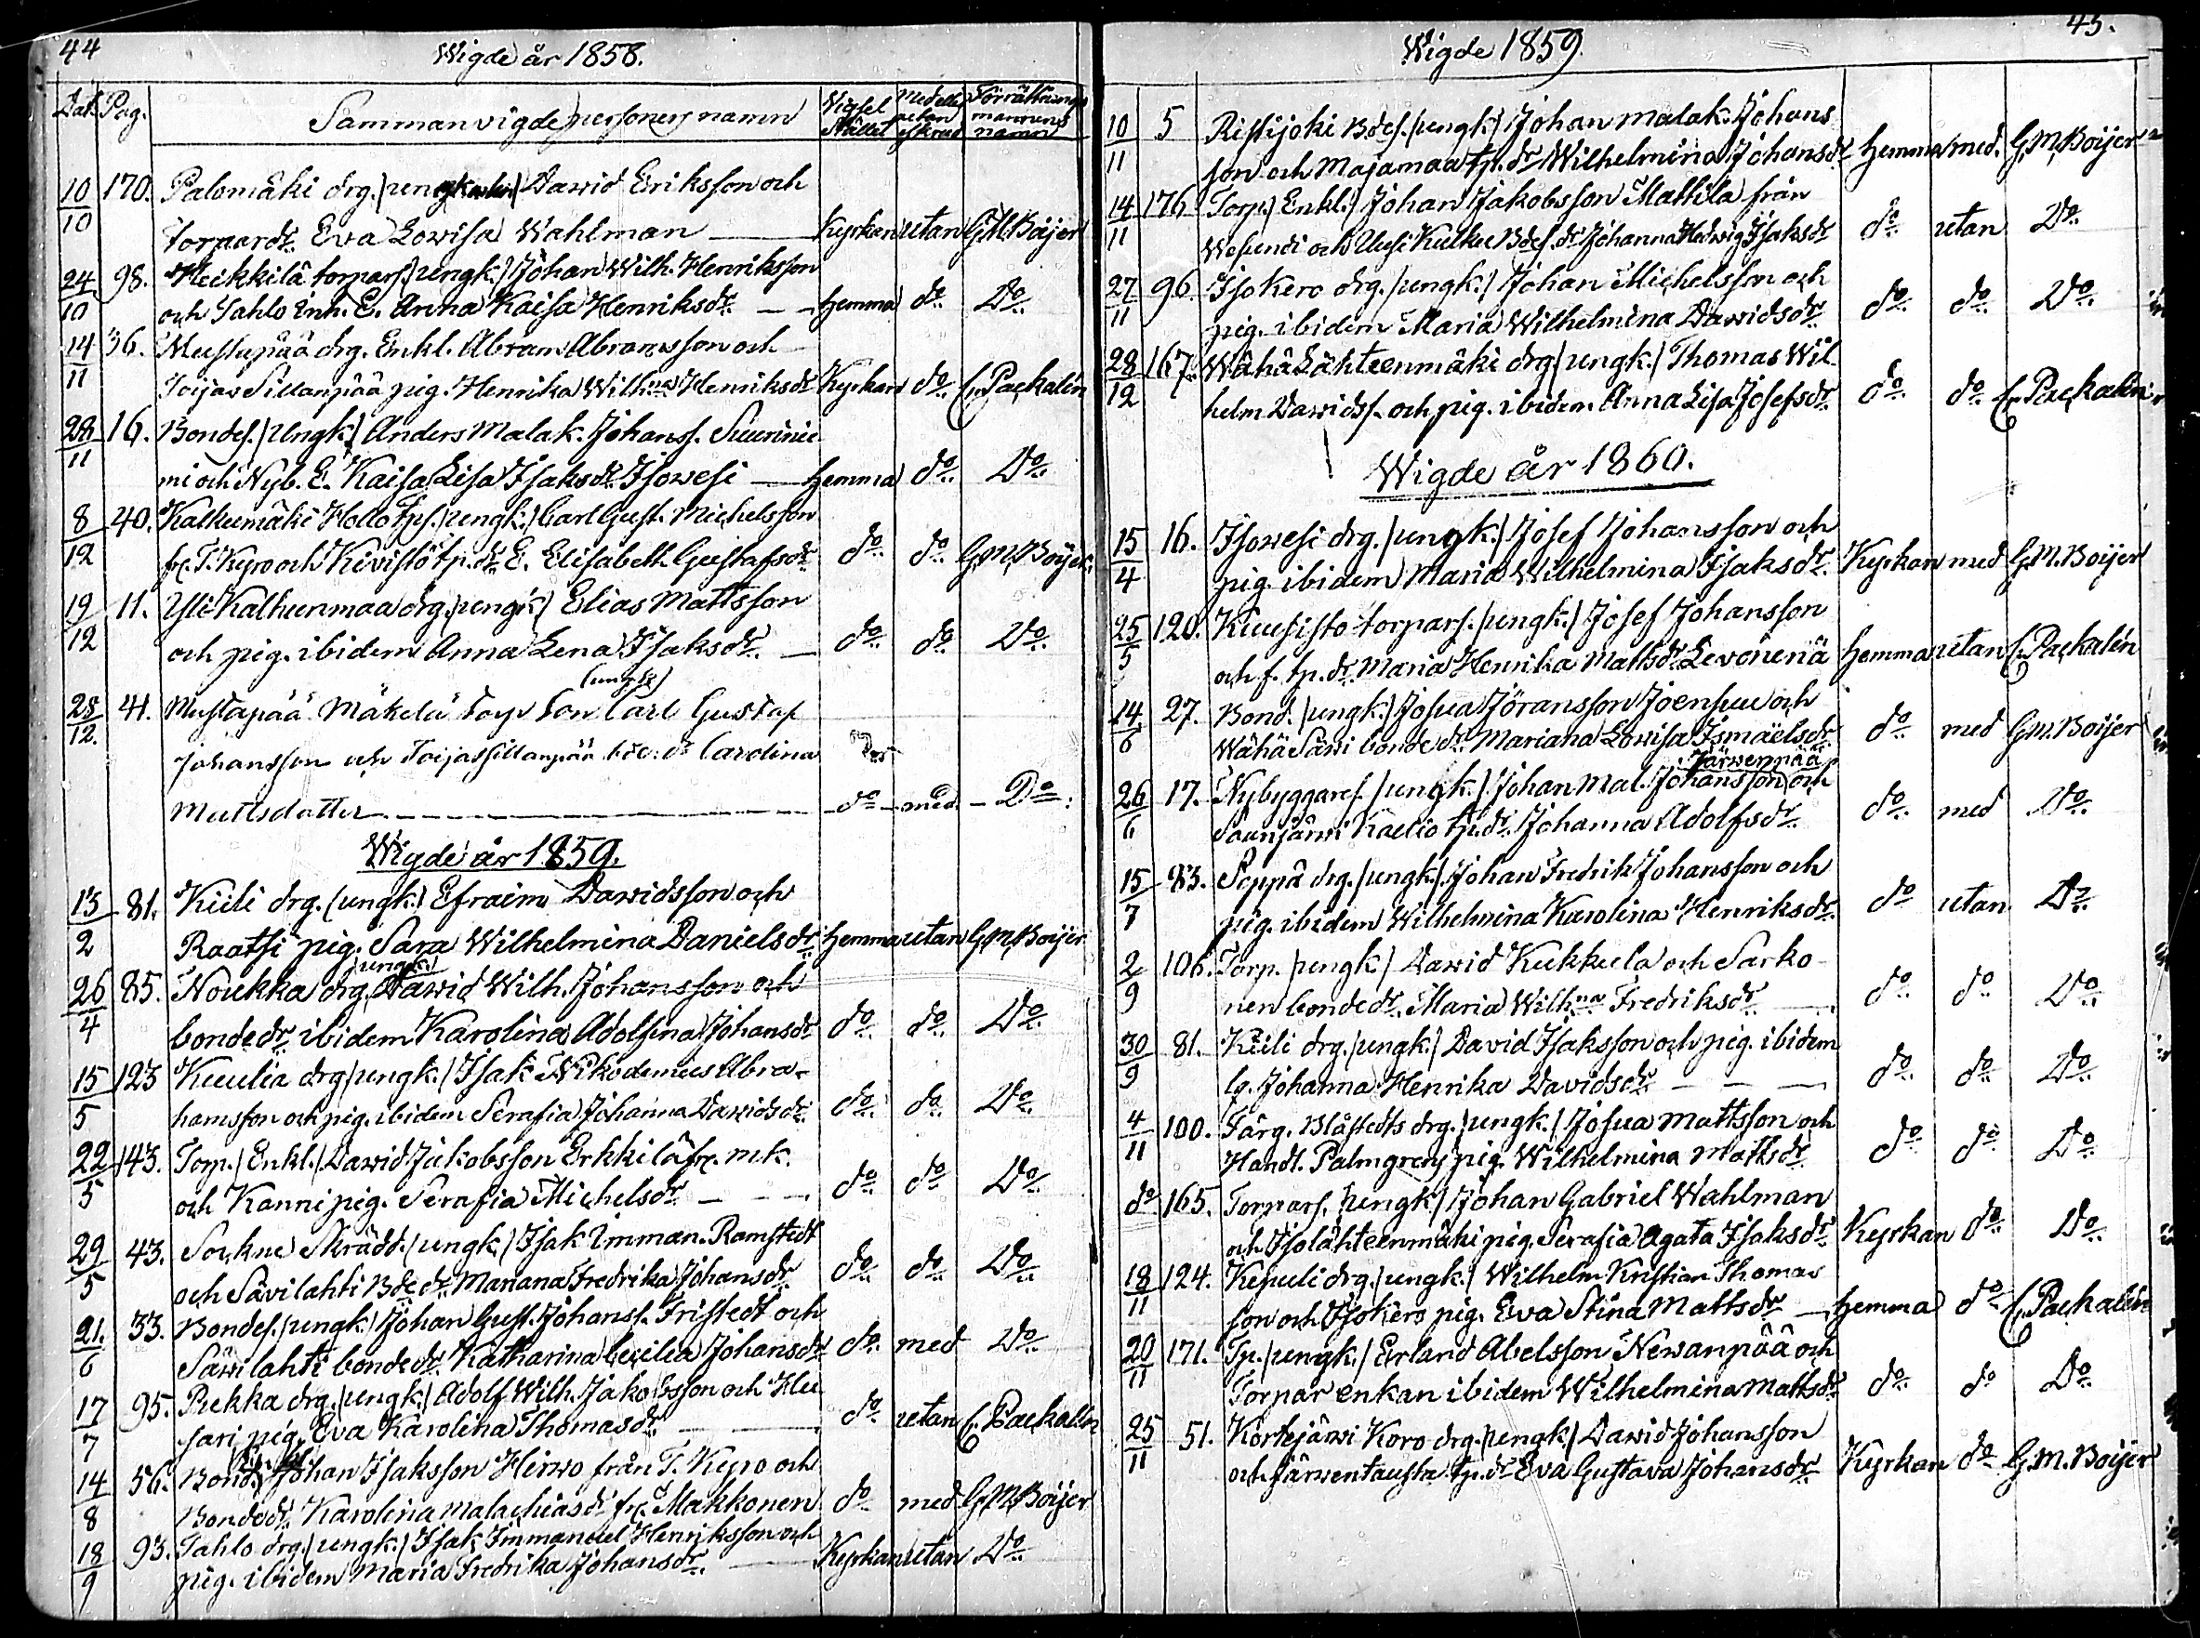 44
Wigde år 1858.
Dat. Pag. Sammanvigde personers namn Vigsel Stället Med eller utan Förrättnings mannens namn
10/10 170. Palomäki drg. Dawid Eriksson och
torpardr. Eva Lowisa Wahlman — Kyrkan utan G.M. Boijer
24/10 98. Heikkilä torpars. (ungk.) Johan Wilh. Henriksson
och Jahlo Inh. E. Anna Kaisa Henriksdr. — hemma do Do
14/11 36. Mustapää drg. Enkl. Abram Abramsson och
Toijas Sillanpää pig. Henrika Wilhna Henriksdr Kyrkan do C. Packalén
28/11 16. Bondes. (ungk.) Anders Malak. Johanss. Suurinie
mi och Nyb. E. Kaisa Lisa Isaksdr Isowesi — hemma do Do
8/12 40. Kalkumäki Hollo tps. (ungk.) Carl Gust. Michelsson
fr. T. Kyro och Kivistö tp. dr E. Elisabeth Gustafsdr do do G.M. Boijer
19/12 11. Yli Kalhunmaa drg. (ungk.) Elias Mattsson
och pig. ibidem Anna Lena Isaksdr. — do do Do
(ungk)
28/12. 41. Mustapää Mäkelä torp son Carl Gustaf
Johansson och Toijassillanpää bde. dr Carolina
Mattsdotter. — do — med. — Do
Wigde år 1859.
13/2 81. Kiili drg. (ungk.) Efraim Dawidsson och
Raatsi pig. Sara Wilhelmina Danielsdr. hemma utan G.M. Boijer
(ungk.)
26/4 85. Noukka drg. Dawid Wilh. Johansson och
bondedr. ibidem Karolina Adolfina Johansdr do do Do
15/5 123 Kuulia drg (ungk.) Isak Nikodemus Abra-
hamsson och pig. ibidem Serafia Johanna Dawidsdr. do do Do
22/5 143. Torp. (Enkl.) Dawid Jakobsson Erkkilä fr. mk.
och Kanni pig. Serafia Michelsdr — do do Do
29/5 43. Sockne Skrädd. (ungk.) Isak Imman. Ramstedt
och Säwilahti Bde dr. Mariana Fredrika Johansdr do do Do
21/6 33. Bondes. (ungk.) Johan Gust. Johanss. Fristedt och
Säwilahti bondedr. Katharina Cecilia Johansdr do med Do
17/7 95. Pukka drg. (ungk.) Adolf Wilh. Jakobsson och Hu
sari pig. Eva Karolina Thomasdr. — do utan C. Packalén
14/8 56. Bond. Johan Isaksson Hirwo från T. Kyro och
Bondedr. Karolina Malachiasdr fr. Makkonen do med G.M. Boijer
18/9 93. Jahlo drg. (ungk.) Isak Immanuel Henriksson och
pig. ibidem Maria Fredrika Johansdr. — Kyrkan utan Do
45.
Wigde 1859.
10/11 5 Ristijoki Bdes. (ungk.) Johan Malak. Johans
son och Majamaa tp. dr Wilhelmina Johansdr hemma med. G.M. Boijer
14/11 176 Torp. (Enkl.) Johan Jakobsson Mattila från
Wesundi och Uusi Kulku Bdes. dr Johanna Hedwig Isaksdr do utan Do
27/11 96. Isokero drg. (ungk.) Johan Michelsson och
pig. ibidem Maria Wilhelmina Dawidsdr do do Do
28/12 167. Wähä Lähteenmäki drg (ungk.) Thomas Wil-
helm Dawids. och pig. ibidem Anna Lisa Josefsdr. do do C. Packalén
Wigde år 1860.
15/4 16. Isowesi drg. (ungk.) Josef Johansson och
pig ibidem Maria Wilhelmina Isaksdr. Kyrkan med G.M. Boijer
25/5 120. Kuusisto torpars. (ungk.) Josef Johansson
och f. tp. dr. Maria Henrika Mattsdr. Levonenä hemma utan C. Packalén
14/6 27. Bond. (ungk.) Josua Jöransson Joensuu och
Wähä Säwi bonde dr. Mariana Lowisa Ismäelsdr. do med G.M. Boijer
Järwenpää
26/6 17. Nybyggares. (ungk.) Johan Mal. Johansson och
Saunjärwi tp. dr. Johanna Adolfsdr. do med Do
15/7 83. Seppä drg. (ungk.) Johan Fredrik Johansson och
pig. ibidem Wilhelmina Karolina Henriksdr. do utan Do
2/9 106. Torp. (ungk.) Dawid Kukkula och Sarko-
nen bondedr. Maria Wilhna Fredriksdr — do do Do
30/9 81. Kiili drg. (ungk.) David Isaksson och pig. ibidem
Johanna Henrika Davidsdr — do do Do
4/11 100. Färg. Blåfjedts drg. (ungk.) Josua Mattsson och
Handl. Palmgrens pig. Wilhelmina Mattsdr. do do Do
do 165. Torpars. (ungk.) Johan Gabriel Wahlman
och Isolähteenmäki pig. Serafia Agata Isaksdr Kyrkan do Do
18/11 124. Kepuli drg. (ungk.) Wilhelm Kristian Thomas
son och Isokero pig. Eva Stina Mattsdr — hemma do C. Packalén
20/11 171. Tp. (ungk.) Erland Abelsson Newanpää och
Torpar enkan ibidem Wilhelmina Mattsdr do do Do
25/11 51. Kortejärwi Koro drg. (ungk.) Dawid Johansson
och Järwentausta tp. dr Eva Gustava Johansdr. Kyrkan do G.M. Boijer